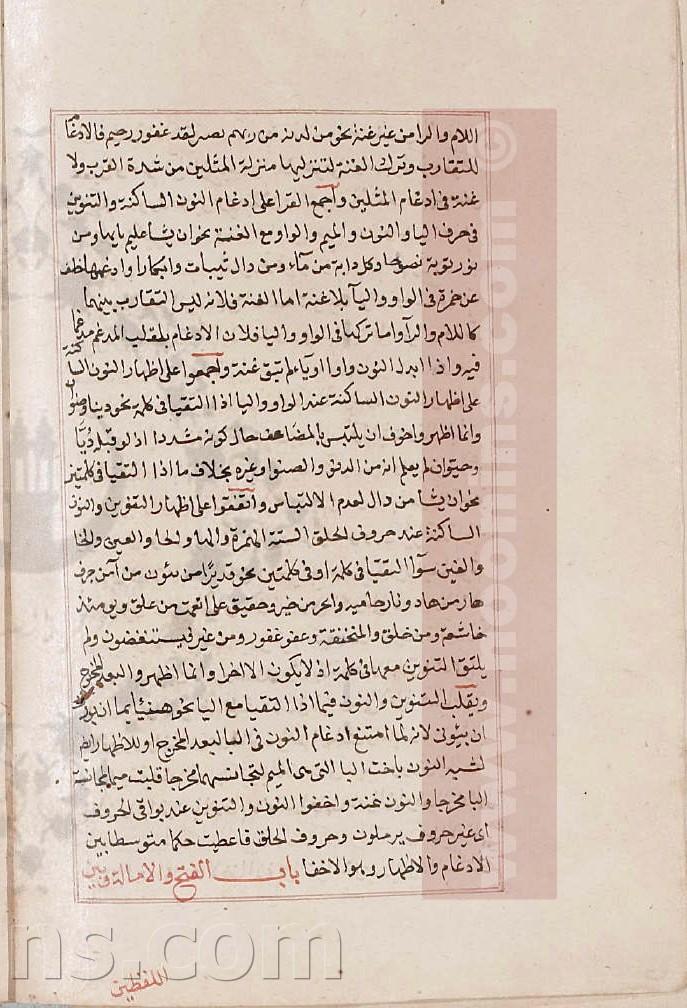 اللام والرا من غير غنة نحو من لدنه من ربهم بصير لقد غفور رحيم فالادغام
للمتقارب وترك الغنة لتنزيلها منزلة المثلين من شدة القرب ولا
غنة فى ادغام المثلين واجمع القرا على ادغام النون الساكنة والتنوين
فى حرف اليا والنون والميم والواو مع الغنة نحو ان يشا عليم بابها ومن
نور توبة نصوحا وكل دابة من مآء ومن دال ثيبات وابكارا وادغمها خلف
عن حمزة فى الواو واليآ بلا غنة اما الغنة فلانه ليس التقارب بينهما
كاللام والرآ واما تركه فى الواو واليا فلان الادغام يلقلب المدغم مدغما
فيه واذا ابدل النون واوا او ياء لم تبق غنة واجمعوا على اظهار النون الساكنة
على اظهار النون الساكنة عند الواو واليا اذا التقيا فى كلمة نحو دينا وصنوان
وانما اظهروا خوف ان يلتبس بالمضاعف حال كونه مشددا اذ لو قيل ديّا
وحيوان لم يعلم انه من الدنو والصنو او غيره بخلاف ما اذا التقيا فى كلمتين
نحو ان يشا من دال لعدم الالتباس واتفقوا على اظهار التنوين والنون
الساكنة عند حروف الحلق الستة الهمزة والها والحا والعين والخا
والغين سوآ التقيا فى كلمة او فى كلمتين نحو قديرا من ينون من آمن جرف
هار من هاد ونار حاميه وانحر من خير وحقيق على انعمت من علق ويومئذ
خاشعة ومن خلق والمنخنقة وعفو غفور ومن غير فسينغضون ولم
يلتق التنوين معها فى كلمة اذ لا يكون الا اخرا وانما اظهر والبعد المخرج
ويقلب التنوين والنون فيما اذا التقيا مع البا نحو هنيئا بما ان بورك
ان بيونى لانه لما امتنع ادغام النون فى البا لبعد المخرج او للاظهار ايضا
لشبه النون باخت البا التى هى الميم لتجانسهما مخرجا قلبت ميما لمجانسة
البا مخرجا والنون غنة واخفوا النون والتنوين عند بواقى الحروف
اى غير حروف يرملون وحروف الحلق فاعطيت حكما متوسطا بين
الادغام والاظهار وهو الاخفا باب الفتح والامالة وبين
اللفظين